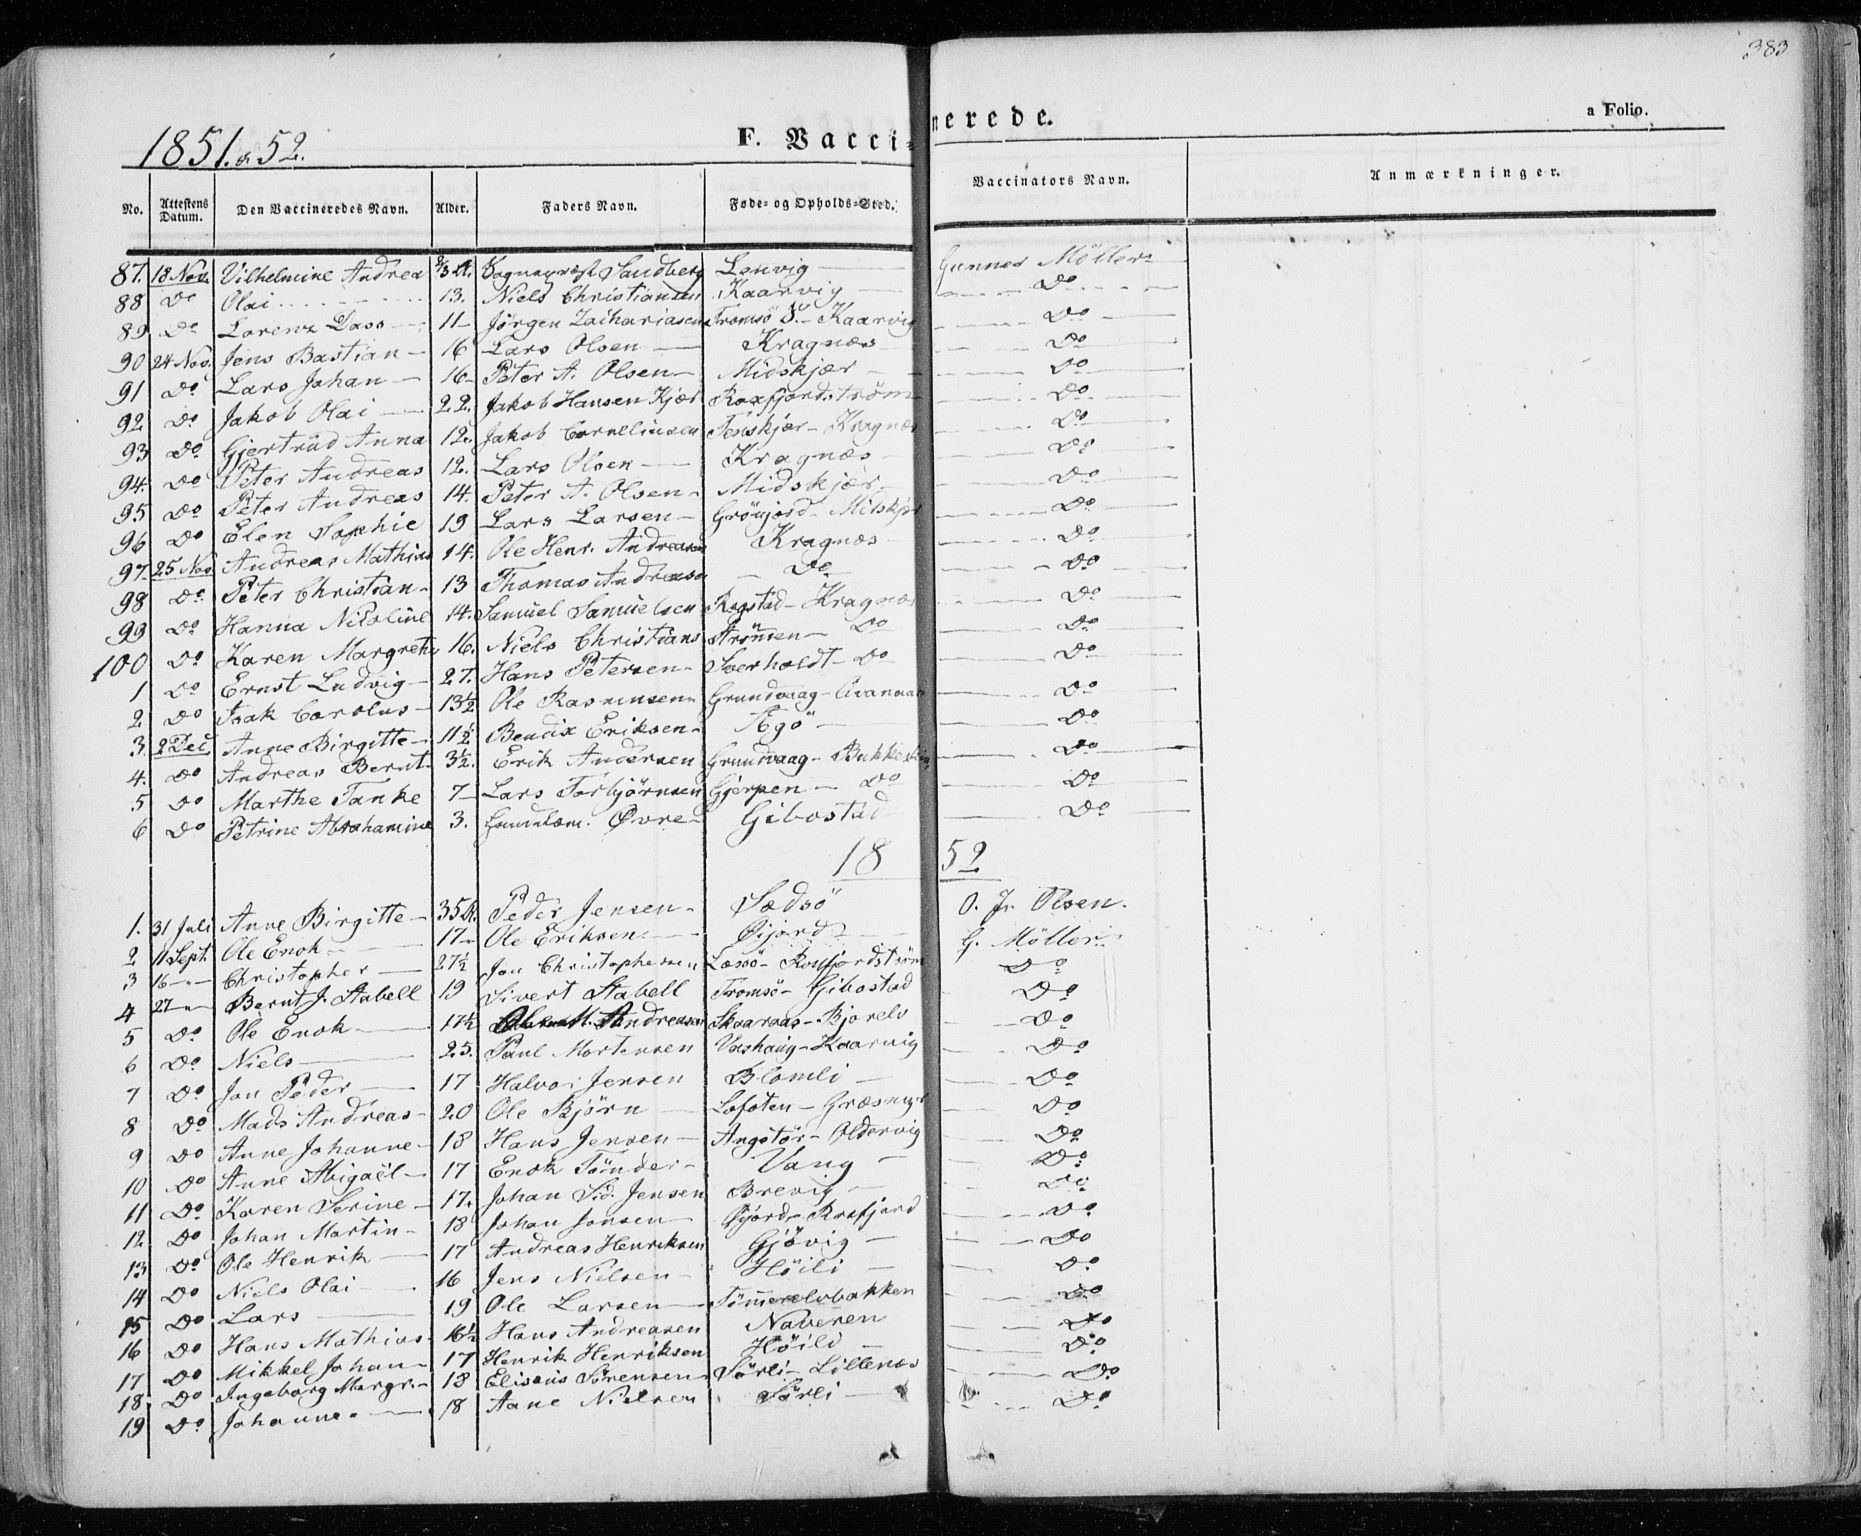 383
1851. & 52.
F. Vaccinerede.
a Folio.
No. | Attestens Datum. | Den Vaccineredes Navn. | Alder. | Faders Navn. | Føde- og Opholds-Sted. | Vaccinators Navn. | Anmærkninger.
87. 18 Nov. Vilhelmine Andrea 2/3 A. Sognepræst Sandberg Lenvig Gunner Möller
88 Do Olai 13. Niels Christiansen Kaarvig Do
89 Do Lorenz Dass 11 Jörgen Zachariasen Tromsö S. - Kaarvig Do
90 24 Nov. Jens Bastian 16 Lars Olsen Kragnæs Do
91 Do Lars Johan 16 Peter A. Olsen Midskjær Do
92 Do Jakob Olai 22. Jakob Hansen Kjær Roxfjordstrøm Do
93 Do Gjertrüd Anna 12. Jakob Corneliusen Tenskjær - Kragnæs Do
94. Do Peter Andreas 12. Lars Olsen Kragnæs Do
95 Do Peter Andreas 14. Peter A. Olsen Midskjær Do
96 Do Elen Sophie 19 Lars Larsen Grönjord - Midskjær Do
97. 25 Nov. Andreas Mathias 14. Ole Henr. Andreasen Kragnæs Do
98 Do Peter Christian 13 Thomas Andreasen Do Do
99 Do Hanna Nicoline 14. Samuel Samuelsen Rogstad - Kragnæs Do
100 Do Karen Margrethe 16. Niels Christians Strömsen - Do Do
1 Do Ernst Ludvig 27. Hans Petersen Sverholdt - Do Do
2 Do Isak Carolus 13½ Ole Rasmusen Grundvaag - Do
3. 2 Dec Anne Birgitte 11½ Bendix Eriksen Ægö Do
4. Do Andreas Bernt 3½. Erik Andersen Grundvaag - Bukkeskin Do
5 Do Marthe Tanke 7 Lars Torbjörnsen Gjerpen - Do Do
6 Do Petrine Abrahamine 3. Øvre Gibostad Do
1852
1. 31 Juli Anne Birgitte 35 A. Peder Jensen Sædsö O. J. Olsen.
2 11 Sept. Ole Enok 17 Ole Eriksen Öijord G. Möller
3 16 - " - Christopher 27½ Jon Christophersen Læssö - Roxfjordström Do
4 27 - " - Bernt J. Stabell 19 Sivert Stabell Tromsö - Gibostad Do
5 Do Ole Enok 17½ Ole M. Andreasen Skaaraas - Bjorelv Do
6 Do Niels 25. Paul Mortensen Vashaug - Kaarvig Do
7 Do Jon Peder 17 Halvor Jensen Blomli Do
8 Do Mads Andreas 20 Ole Bjørn Lofoten - Græsmyr Do
9 Do Anne Johanne 18 Hans Jensen Angstör - Oldervig Do
10 Do Anne Abigaël 17 Enok Tönder Vang Do
11 Do Karen Serine 17. Johan Sid. Jensen Brevig Do
12 Do Johan Martin 18 Johan Jonsen Öijord - Roxfjord Do
13 Do Ole Henrik 17 Andreas Henriksen Gjövig Do
14 Do Niels Olai 16 Jens Nielsen Höili Do
15 Do Lars 19 Ole Larsen Tömmerelvbakken Do
16 Do Hans Mathias 16½ Hans Andreasen Naveren Do
17 Do Mikkel Johan 17 Henrik Henriksen Höili Do
18 Do Ingeborg Margr. 18 Elisæus Sörensen Sörli - Lillenæs Do
19 Do Johanne 18 Aane Nielsen Sörli Do